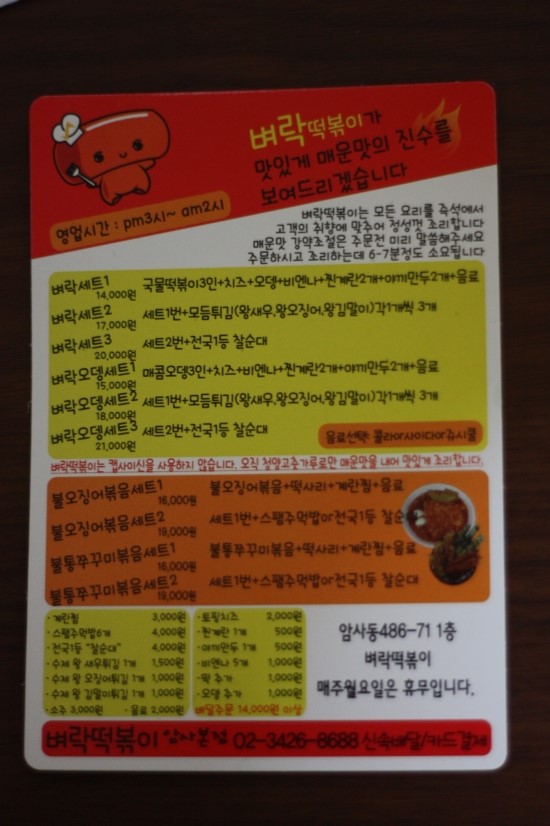 벼락떡볶이가
맛있게 매운맛의 진수를
보여드리겠습니다
영업시간 : pm3시~ am2시
벼락떡볶이는 모든 요리를 즉석에서
고객의 취향에 맞추어 정성껏 조리합니다
매운맛 강약조절은 주문전 미리 말씀해주세요
주문하시고 조리하는데 6-7분정도 소요됩니다
벼락세트1 국물떡볶이3인+치즈+오뎅+비엔나+찐계란2개+야끼만두2개+음료
14,000원
벼락세트2 세트1번+모듬튀김(왕새우,왕오징어,왕김말이)각1개씩 3개
17,000원
벼락세트3 세트2번+전국1등 찰순대
20,000원
벼락오뎅세트1 매콤오뎅3인+치즈+비엔나+찐계란2개+야끼만두2개+음료
15,000원
벼락오뎅세트2 세트1번+모듬튀김(왕새우,왕오징어,왕김말이)각1개씩 3개
18,000원
벼락오뎅세트3 세트2번+전국1등 찰순대
21,000원
음료선택: 콜라or사이다or쥬시쿨
벼락떡볶이는 캡사이신을 사용하지 않습니다. 오직 청양고추가루로만 매운맛을 내어 맛있게 조리합니다.
불오징어볶음세트1 불오징어볶음+떡사리+계란찜+음료
16,000원
불오징어볶음세트2 세트1번+스팸주먹밥or전국1등 찰순
19,000원
불통쭈꾸미볶음세트1 불통쭈꾸미볶음+떡사리+계란찜+음료
16,000원
불통쭈꾸미볶음세트2 세트1번+스팸주먹밥or전국1등 찰순대
19,000원
· 계란찜 3,000원
· 스팸주먹밥6개 4,000원
· 전국1등 "찰순대" 4,000원
· 수제 왕 새우튀김 1개 1,500원
· 수제 왕 오징어튀김 1개 1,000원
· 수제 왕 김말이튀김 1개 1,000원
· 소주 3,000원 · 음료 2,000원
· 토핑치즈 2,000원
· 찐계란 1개 500원
· 야끼만두 1개 500원
· 비엔나 5개 1,000원
· 떡 추가 1,000원
· 오뎅 추가 1,000원
배달주문 14,000원 이상
암사동486-71 1층
벼락떡볶이
매주월요일은 휴무입니다.
벼락떡볶이 암사본점 02-3426-8688 신속배달/카드결제